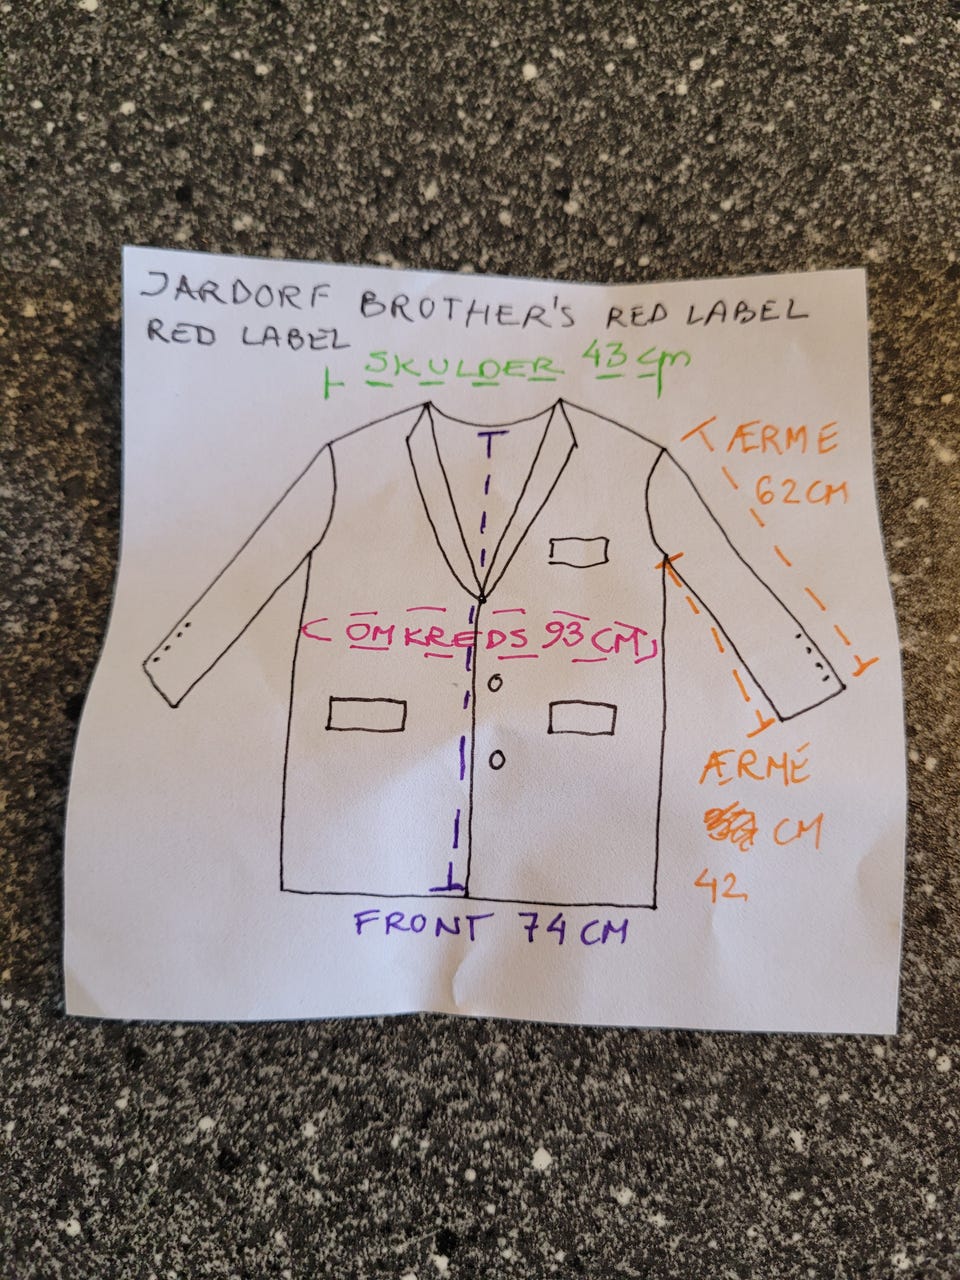 JARDORF BROTHER'S RED LABEL
RED LABEL
SKULDER 43 cm
ÆRME
62 CM
OMKREDS 93 CM
ÆRME
CM
42
FRONT 74 CM